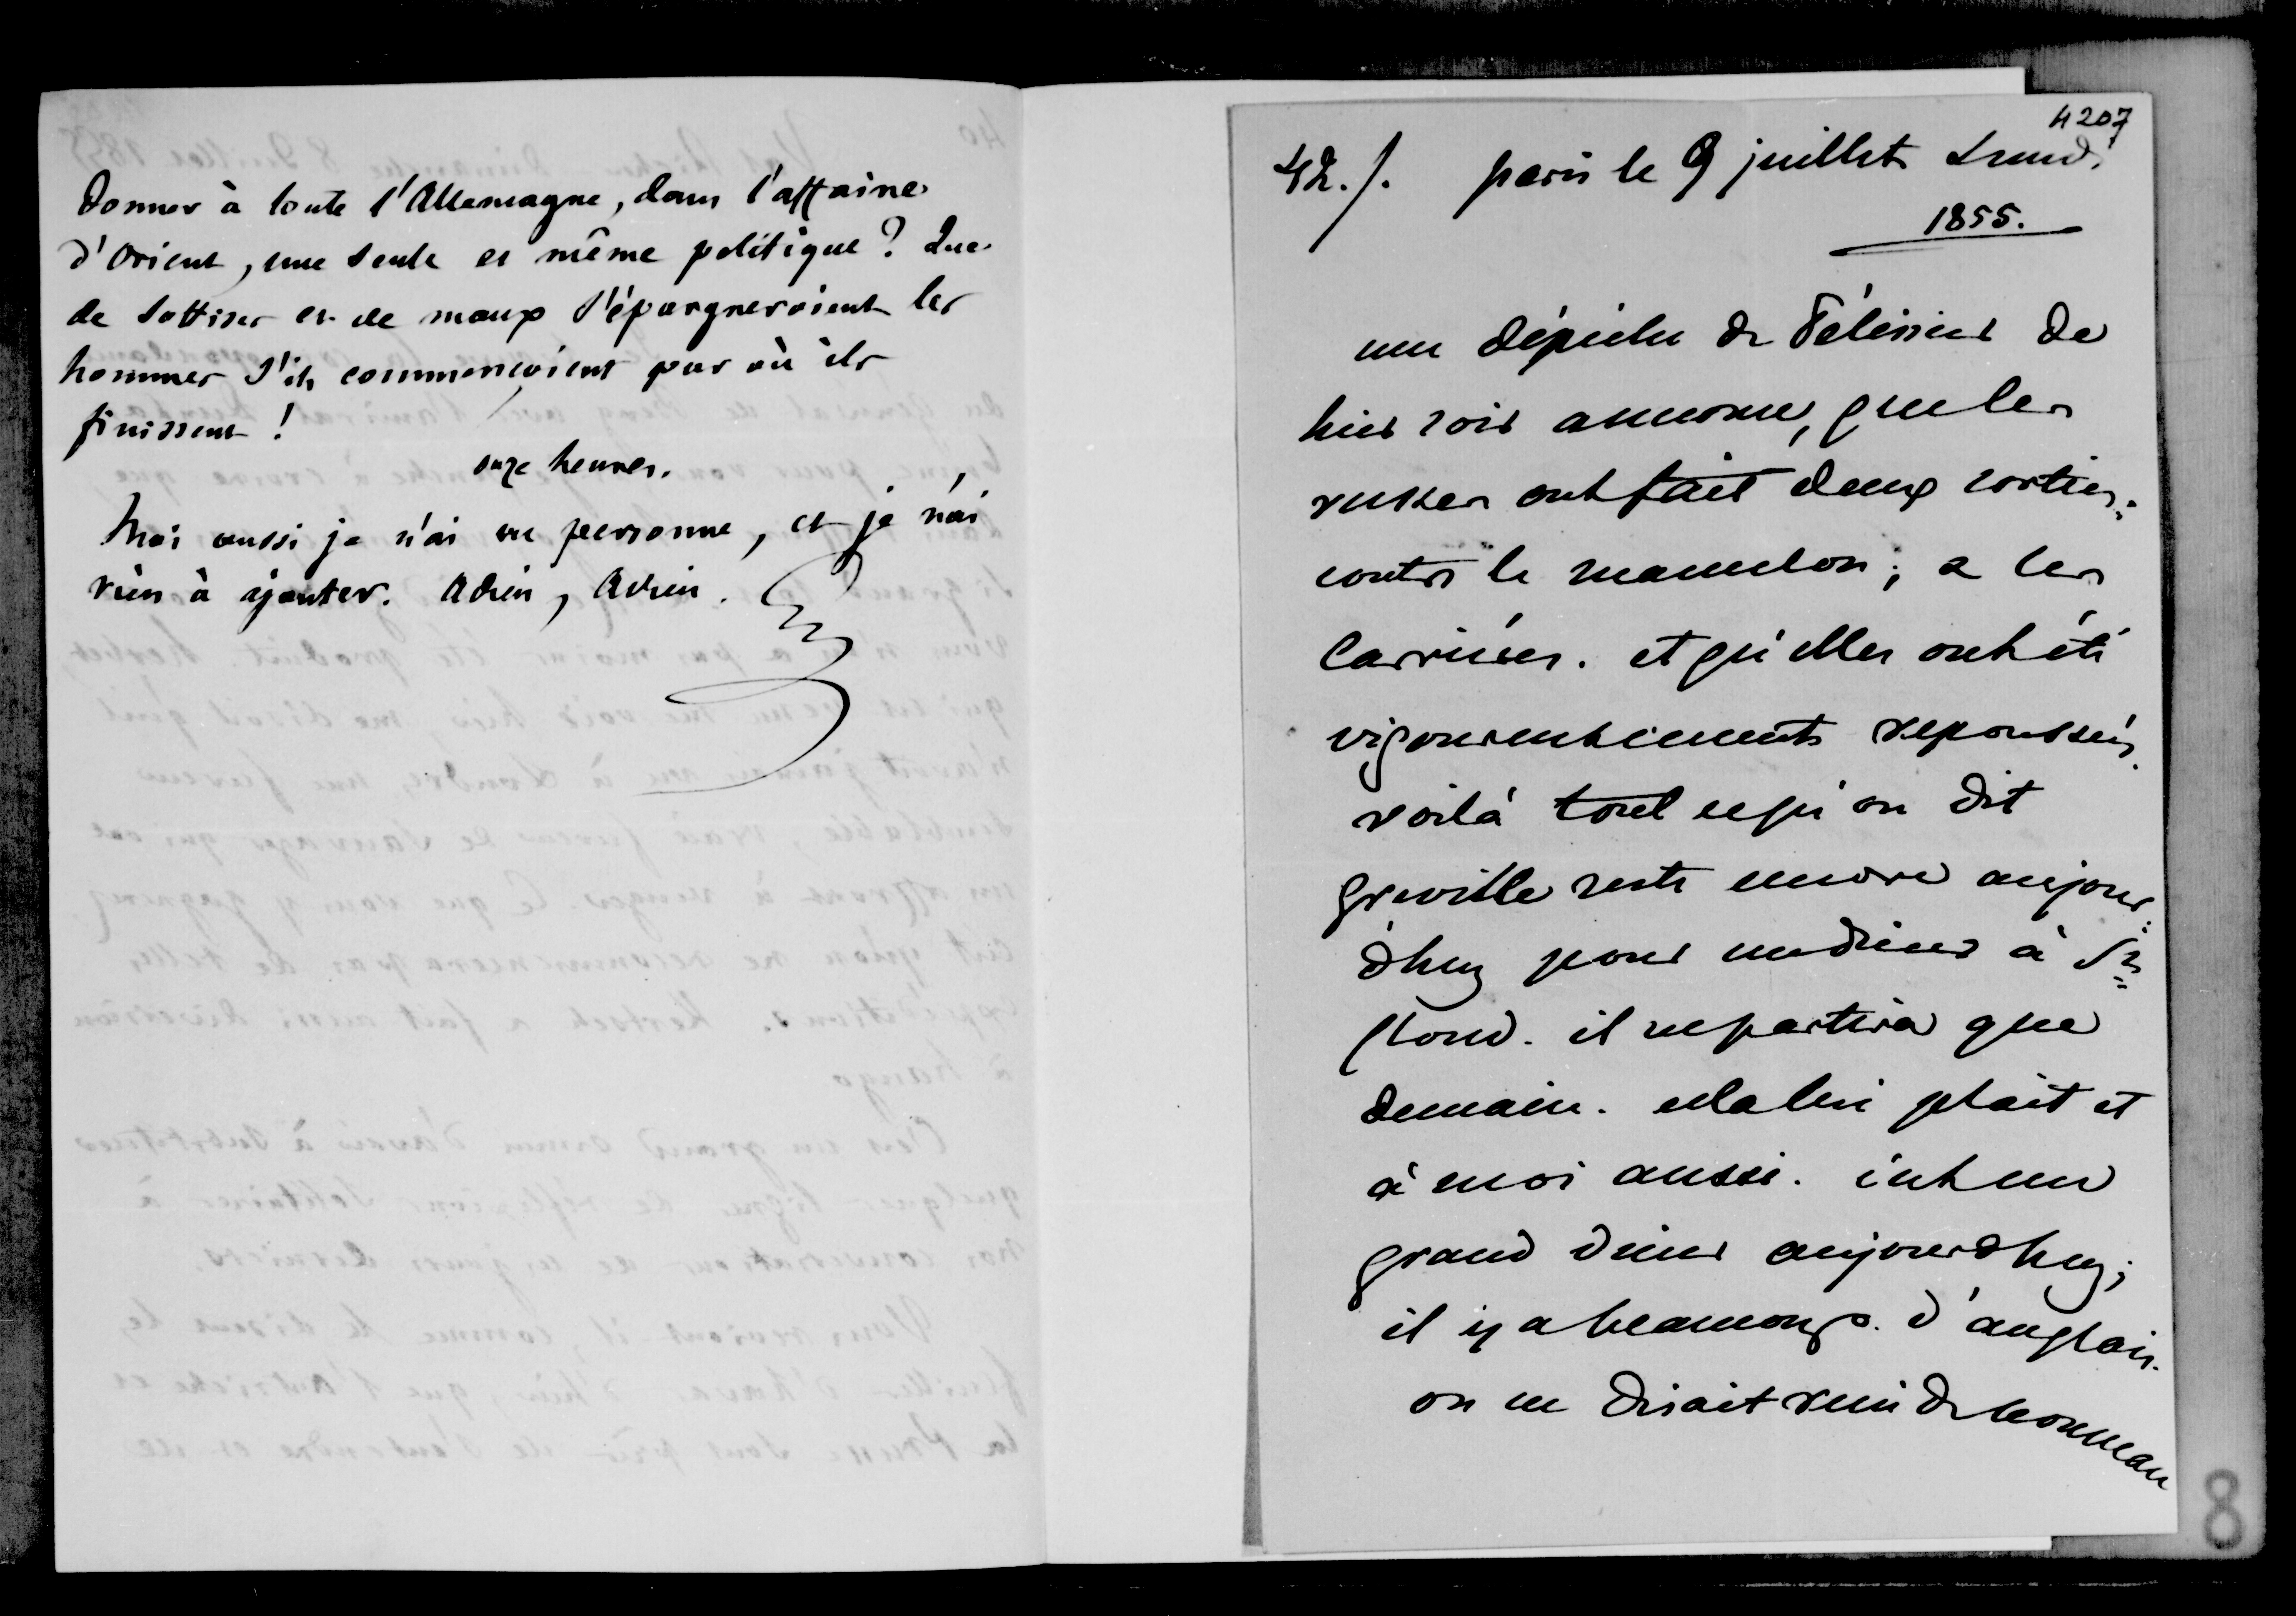 donner à toute l'Allemagne, dans l'affaire
d'Orient, une seule et même politique? Que
de sottises et de maux s'épargneroient les
hommes s'ils commençoient par où ils
finissent!
onze heures.
Moi aussi je n'ai vu personne, et je n'ai
rien à ajouter. Adieu, Adieu.
4207
42./. paris le 9 juillet Lundi
1855.
une dépêche de Pélissier de
hier soir annonce, que les
russes ont fait deux sorties
contre le mamelon; & les
Carrières. et qu'elles ont été
vigoureusement repoussées.
voilà tout ce qu'on dit
greville reste encore aujour
d'huy pour un diner à St
Cloud. il ne partira que
demain. cela lui plait et
à moi aussi. c'est un
grand diner aujourdhuy;
il y a beaucoup d'anglais.
on ne disait rien de nouveau
8